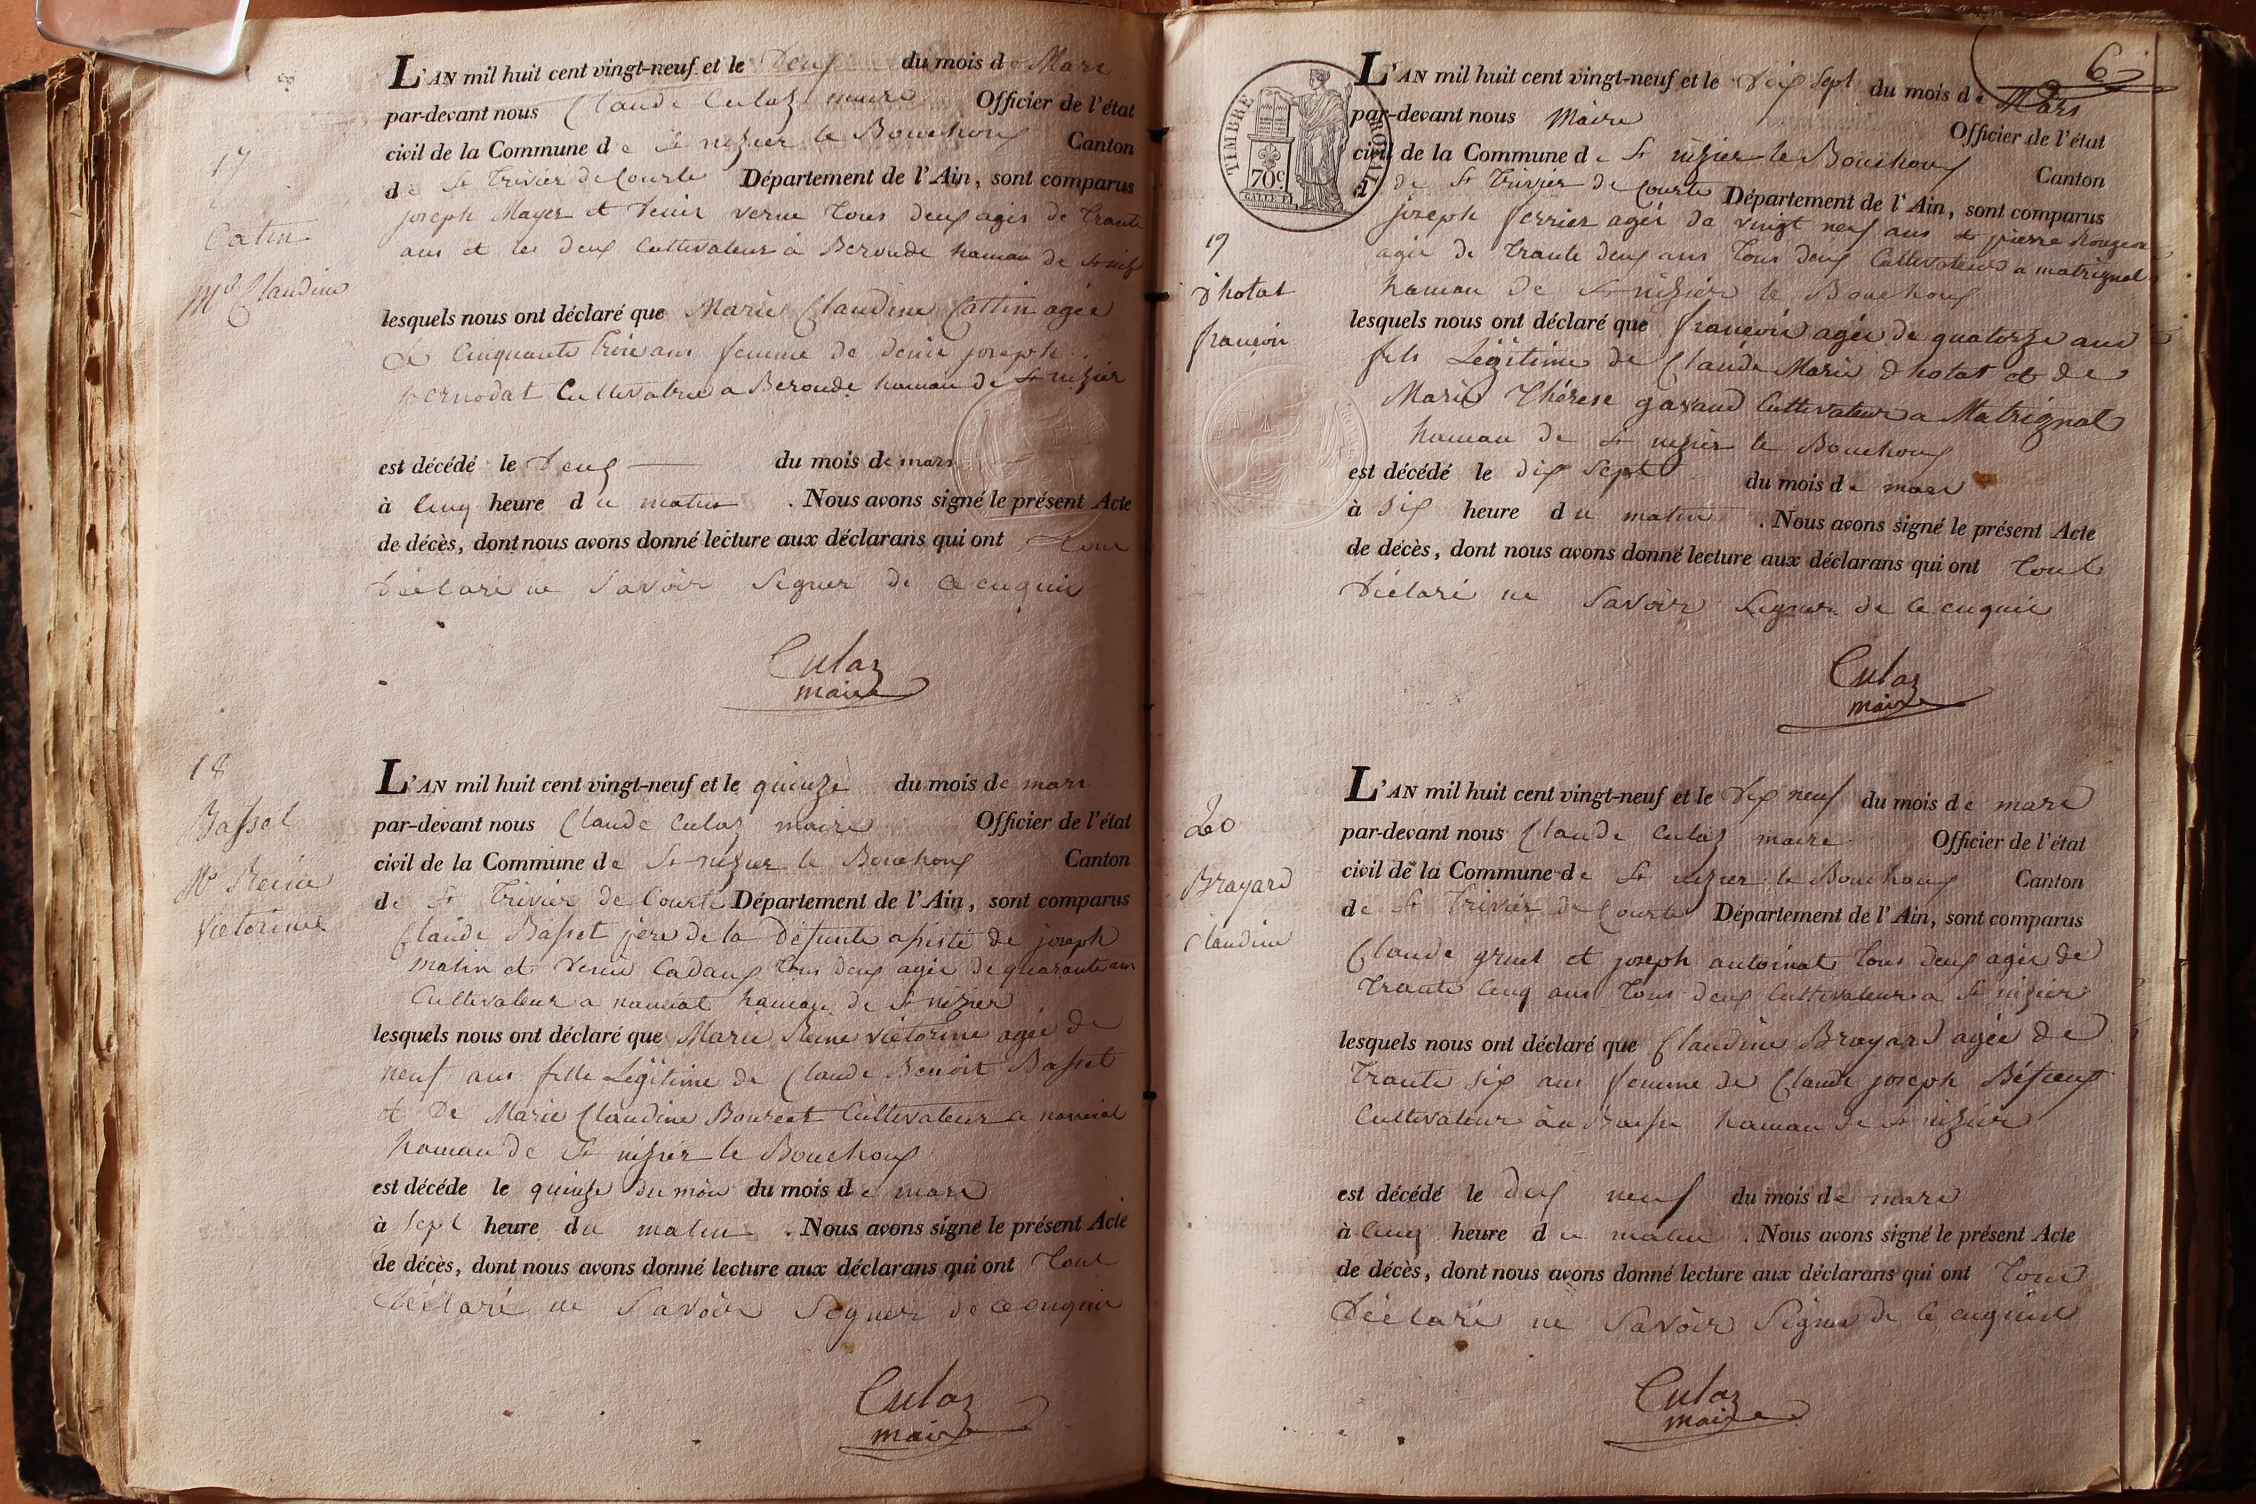 17
Catin
Mie Claudine
L'AN mil huit cent vingt-neuf et le Deux du mois de Mars
par-devant nous Claude Culaz maire Officier de l'état
civil de la Commune de St nizier le Bouchoux Canton
de St Trivier de Courte Département de l'Ain, sont comparus
joseph Mayer et Denis verne tous deux agés de trante
ans et les deux Cultivateur à Beronde hamau de St niz
lesquels nous ont déclaré que Marie Claudine Cattin agée
de Cinquante trois ans femme de denis joseph
pernodat Cultivatrice a Beronde hamau de St nizier
est décédé le Deux du mois de mars
à Cinq heure du matin . Nous avons signé le présent Acte
de décès, dont nous avons donné lecture aux déclarans qui ont tous
Déclaré ne Savoir Signer de ce enquis
Culaz
maire
18
Basset
Mie Reine
Victorine
L'AN mil huit cent vingt-neuf et le quinze du mois de mars
par-devant nous Claude Culaz maire Officier de l'état
civil de la Commune de St nizier le Bouchoux Canton
de St Trivier de Courte Département de l'Ain, sont comparus
Claude Basset père de la Défunte assisté de joseph
matin et Denis Cadaux tous deux agés de quarante ans
Cultivateur a hamau de St nizier
lesquels nous ont déclaré que Marie Reine victorine agée de
neuf ans fille Légitime de Claude Benoit Basset
et De Marie Claudine Cultivateur a
hamau de St nizier le Bouchoux
est décéde le quinze du mois du mois de mars
à Sept heure du matin . Nous avons signé le présent Acte
de décès, dont nous avons donné lecture aux déclarans qui ont tous
Déclaré ne Savoir Signer de ce enquis
Culaz
maire
6
TIMBRE ROYAL
70c
19
Dhotat
françois
L'AN mil huit cent vingt-neuf et le Dix Sept du mois de Mars
par-devant nous Maire Officier de l'état
civil de la Commune de St nizier le Bouchoux Canton
de St Trivier de Courte Département de l'Ain, sont comparus
joseph ferrier agés de vingt neuf ans et pierre
agés de trante deux ans tous deux Cultivateurs a matrignat
hamau de St nizier le Bouchoux
lesquels nous ont déclaré que françois agée de quatorze ans
fils Légitime de Claude Marie Dhotat et de
Marie Thérese gavand Cultivateur a Matrignat
hamau de St nizier le Bouchoux
est décédé le dix Sept du mois de mars
à Six heure du matin . Nous avons signé le présent Acte
de décès, dont nous avons donné lecture aux déclarans qui ont tous
Déclaré ne Savoir Signer de ce enquis
Culaz
maire
20
Brayard
Claudine
L'AN mil huit cent vingt-neuf et le Dix neuf du mois de mars
par-devant nous Claude Culaz maire Officier de l'état
civil de la Commune de St nizier le Bouchoux Canton
de St Trivier de Courte Département de l'Ain, sont comparus
Claude gruet et joseph antoinat tous deux agés de
trante cinq ans tous deux Cultivateur a St nizier
lesquels nous ont déclaré que Claudine Brayard agée de
trante six ans femme de Claude joseph
Cultivateur hamau de St nizier
est décédé le dix neuf du mois de mars
à Cinq heure du matin . Nous avons signé le présent Acte
de décès, dont nous avons donné lecture aux déclarans qui ont tous
Déclaré ne Savoir Signer de ce enquis
Culaz
maire